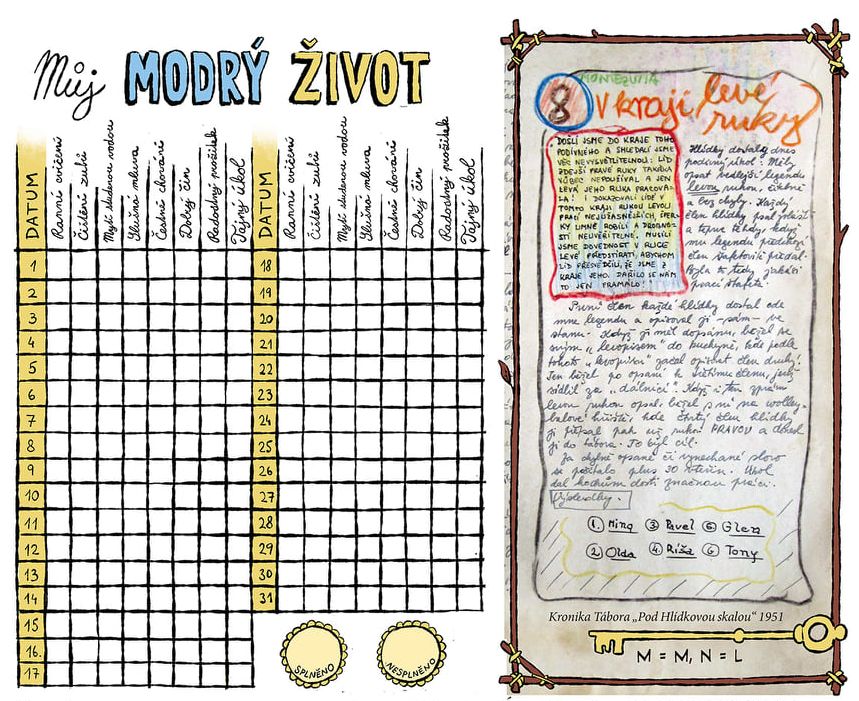 Můj MODRÝ ŽIVOT
DATUM
Ranní cvičení
Čištění zubů
Mytí studenou vodou
Slušná mluva
Čestné chování
Dobrý čin
Radostný prožitek
Tajný úkol
DATUM
Ranní cvičení
Čištění zubů
Mytí studenou vodou
Slušná mluva
Čestné chování
Dobrý čin
Radostný prožitek
Tajný úkol
1
2
3
4
5
6
7
8
9
10
11
12
13
14
15
16.
17
18
19
20
21
22
23
24
25
26
27
28
29
30
31
SPLNĚNO
NESPLNĚNO
MONTEZUMA
8 V kraji levé
ruky
DOŠLI JSME DO KRAJE TOHO
PODIVNÉHO A SHLEDALI JSME
VĚC NEVYSVĚTLITELNOU: LID
ZDEJŠÍ PRAVÉ RUKY TAKŘKA
VŮBEC NEPOUŽÍVAL A JEN
LEVÁ JEHO RUKA PRACOVA-
LA! I DOKAZOVALI LIDÉ V
TOMTO KRAJI RUKOU LEVOU
PRACÍ NEJÚŽASNĚJŠÍCH, ŠPER-
KY JEMNÉ ROBILI A DROBNO-
STI NEUVĚŘITELNÉ. MUSILI
JSME DOVEDNOST V RUCE
LEVÉ PŘEDSTÍRATI, ABYCHOM
LID PŘESVĚDČILI, ŽE JSME Z
KRAJE JEHO. DAŘILO SE NÁM
TO JEN PRAMÁLO!
Hlídky dostaly dnes
podivný úkol: Měly
opsat vedlejší legendu
levou rukou čitelně
a bez chyby. Každý
člen hlídky psal zvlášť
a teprve tehdy, když
mu legendu předchozí
člen štafetově předal.
Byla to tedy jakási
psací štafeta!
První člen každé hlídky dostal ode
mne legendu a opisoval ji sám ve
stanu. Když ji měl dopsánu, běžel se
svým "levopisem" do kuchyně, kde podle
tohoto "levopisu" začal opisovat člen druhý.
Ten běžel po opsání k třetímu členu, jenž
sídlil za "dálnicí". Když i ten zprávu
levou rukou opsal, běžel s ní na volley-
balové hřiště, kde čtvrtý člen hlídky
ji přepsal pak už rukou PRAVOU a donesl
ji do tábora. To byl cíl.
Za chybně opsané či vynechané slovo
se počítalo plus 30 vteřin. Úkol
dal hochům dosti značnou práci.
Výsledky.
1. Ming 3 Pavel 5 Glen
2. Olda 4. Ríša 6 Tony
Kronika Tábora „Pod Hlídkovou skalou“ 1951
M = M, N = L